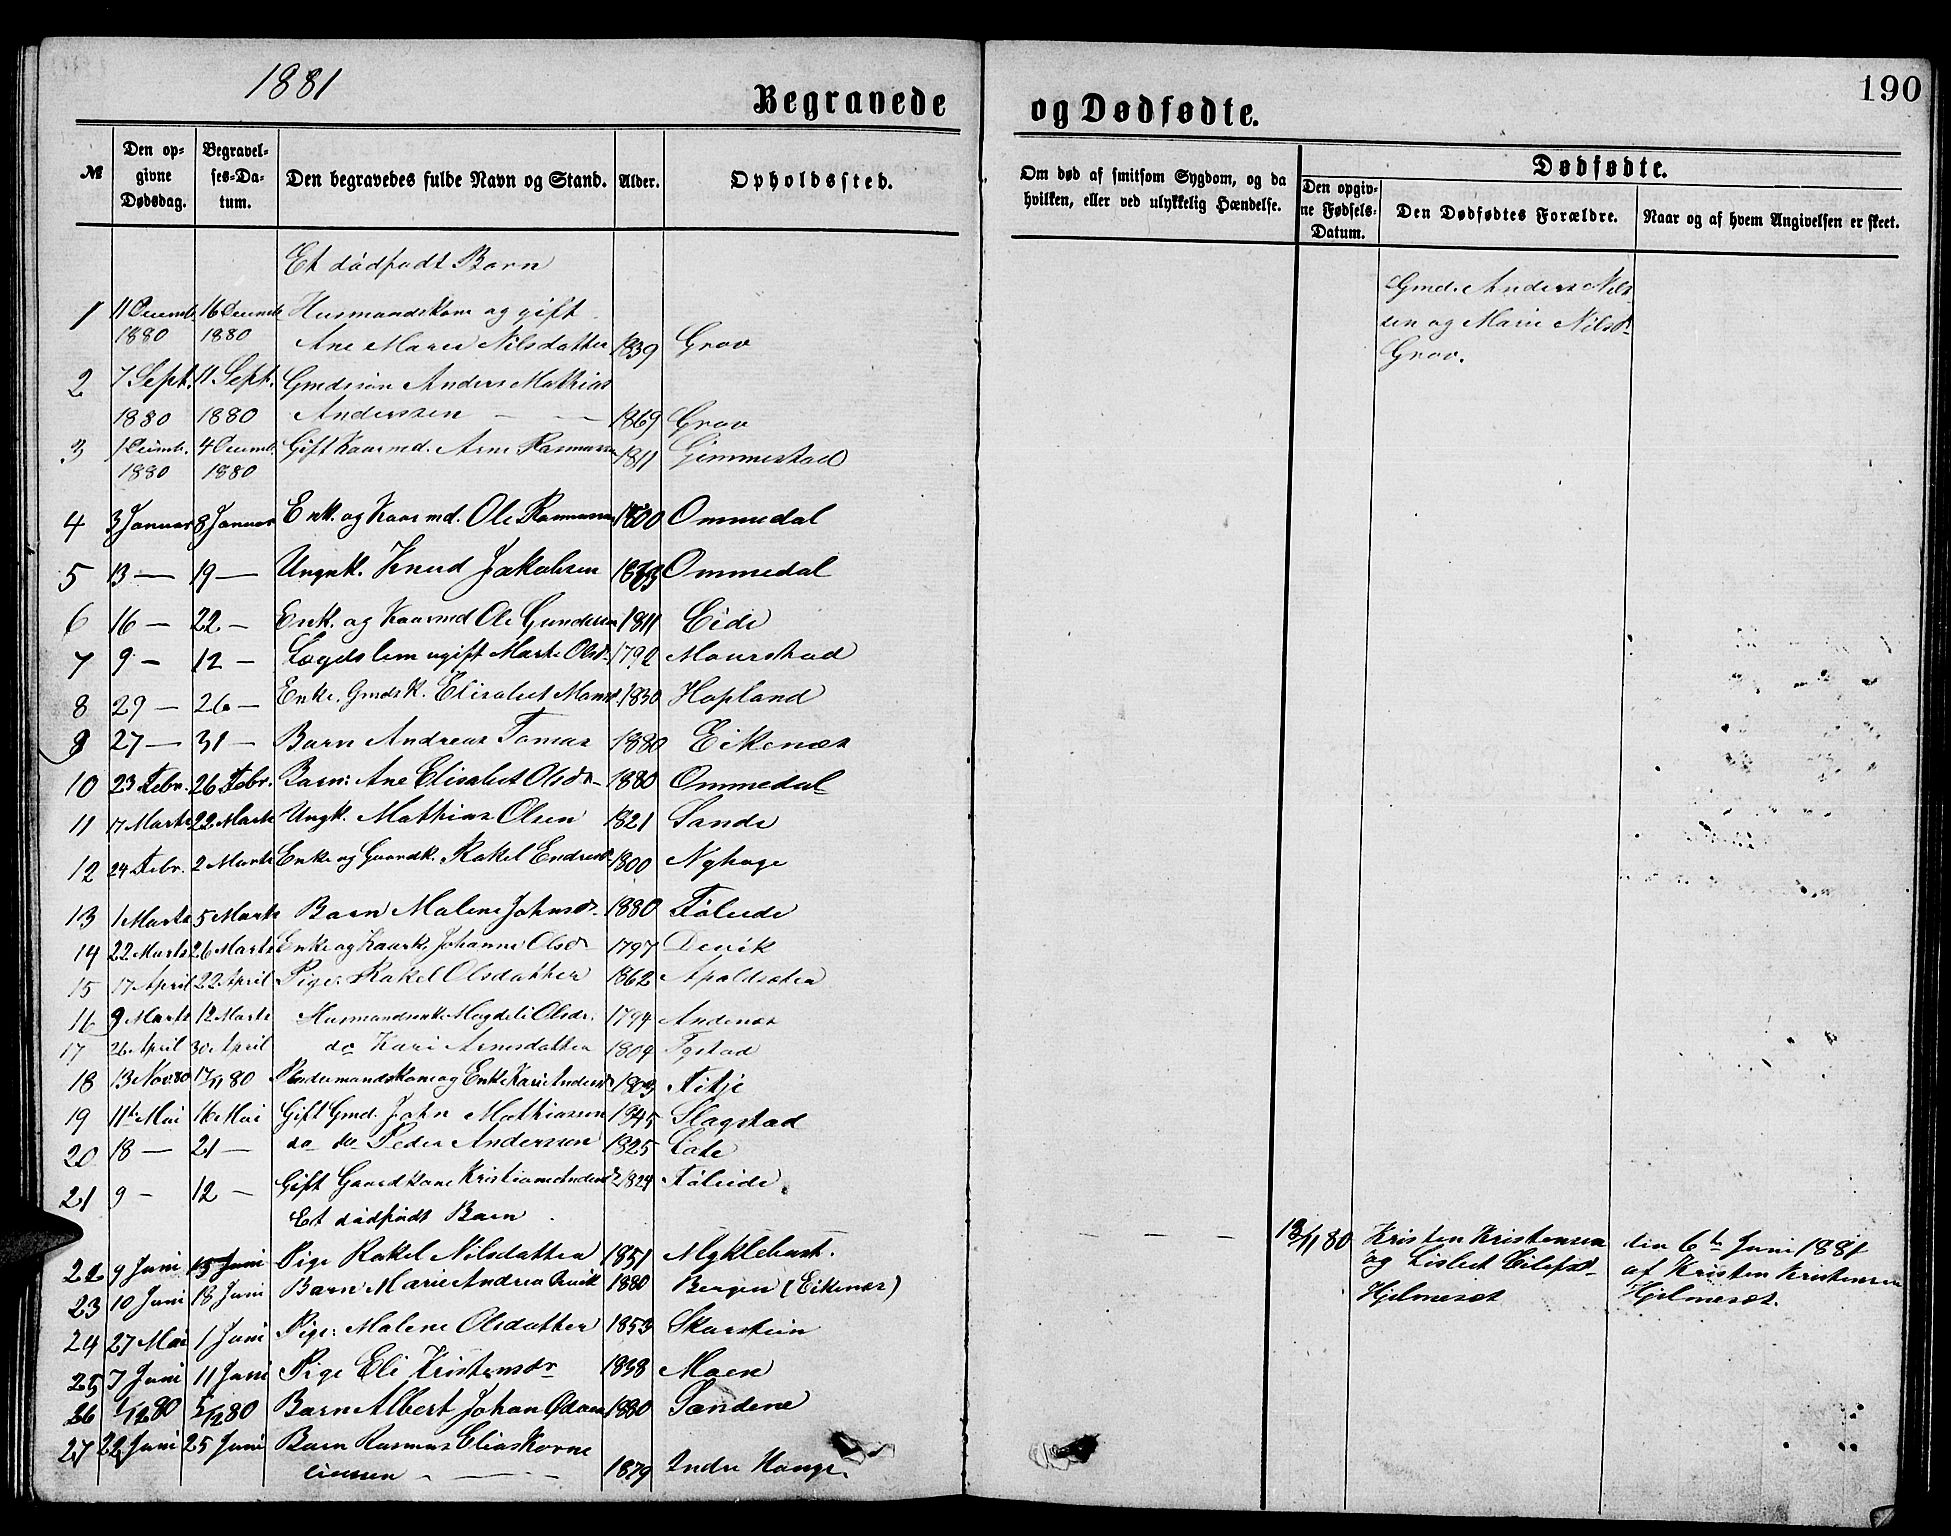 1881
Begravede
og Dødfødte.
190
№
Den op-
givne
Dødsdag.
Begravel-
ses-Da-
tum.
Den begravedes fulde Navn og Stand.
Alder.
Opholdssted.
Om død af smitsom Sygdom, og da
hvilken, eller ved ulykkelig Hændelse.
Dødfødte.
Den opgiv-
ne Fødsels-
Datum.
Den Dødfødtes Forældre.
Naar og af hvem Angivelsen er skeet.
Et dødfødt Barn
Gmd. Anders Nils-
sen og Marie Nilsdr
Grov.
1 11 Decemb. 16 Decemb. Husmandskone og gift
1880 1880 Ane Marie Nilsdatter 1839 Grov
2 7 Sept. 11 Sept. Gmdssøn Anders Mathias
1880 1880 Anderssen — — 1869 Grov
3 1 Decemb. 4 Decemb. Gift Kaarmd. Arne Rasmussen 1811 Gimmestad
1880 1880
4 3 Januar 8 Januar Enk. og Kaarmd. Ole Rasmussen 1800 Ommedal
5 13 — 19 — Ungk. Knud Jakobsen Ommedal
6 16 — 22 — Enk. og Kaarmd Ole Gundersen 1811 Eide
7 9 — 12 — Lægdslem ugift Marte Olsdr. 1792 Maurstad
8 29 — 26 — Enke. Gmdsk. Elisabet Monsdr 1830 Hopland
9 27 — 31 — Barn Andreas Tomas 1880 Eikenæs
10 23 Febr. 26 Febr. Barn: Ane Elisabet Olsdr 1880 Ommedal
11 17 Marts 22 Marts Ungk. Mathias Olsen 1821 Sande
12 24 Febr. 2 Marts Enke og Gaardk. Rakel Endresdr 1800 Nyhage
13 1 Marts 5 Marts Barn Malene Johnsdr. 1880 Føleide
14 22 Marts 26 Marts Enke og Kaark. Johanne Olsdr 1797 Devik
15 17 April 22 April Pige: Rakel Olsdatter 1862 Apaldsæter
16 9 Marts 12 Marts Husmandsenke Magdeli Olsdr. 1794 Andenæs
17 26 April 30 April do Kari Arnesdatter 1809 Tystad
18 13 Nov. 80 17/11 80 Kone og Enke Kari Andersdr Fitje
19 11te Mai 16 Mai Gift Gmd. John Mathiassen 1845 Slagstad
20 18 — 21 — do do Peder Anderssen 1825 Lote
21 9 — 12 — Gift Gaardkone Kristiane Andersdr 1824 Føleide
Et dødfødt Barn
— — — 13/11 80 Kristen Kristensen
og Lisbet Eilefsdr
Hjelmeset
den 6te Juni 1881
af Kristen Kristensen
Hjelmeset.
22 9 Juni 15 Juni Pige Rakel Nilsdatter 1851 Myklebust.
23 10 Juni 18 Juni Barn Marie Andrea 1880 Bergen (Eikenæs)
24 27 Mai 1 Juni Pige: Malene Olsdatter 1853 Skarstein
25 7 Juni 11 Juni Pige Eli Kristensdr 1838 Moen
26 1/12 80 5/12 80 Barn Albert Johan 1880 Sandene
27 22 Juni 25 Juni Barn Rasmus Elias Korne
liussen — — 1879 Indre Hauge.